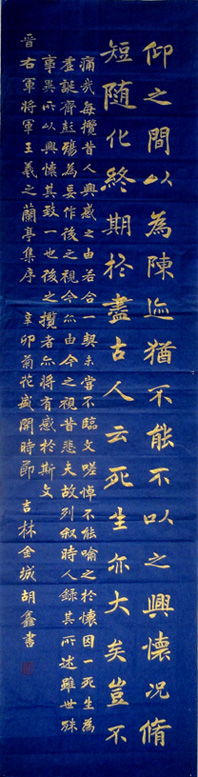 仰之間以為陳迹猶不能不以之興懷况脩
短隨化終期於盡古人云死生亦大矣豈不
痛哉每攬昔人興感之由若合一契未嘗不臨文嗟悼不能喻之於懷固一死生為
虛誕齊彭殤為妄作後之視今亦由今之視昔悲夫故列叙時人錄其所述雖世殊
事異所以興懷其致一也後之攬者亦將有感於斯文
晉右軍將軍王羲之蘭亭集序 辛卯菊花盛開時節 吉林金城胡鑫書